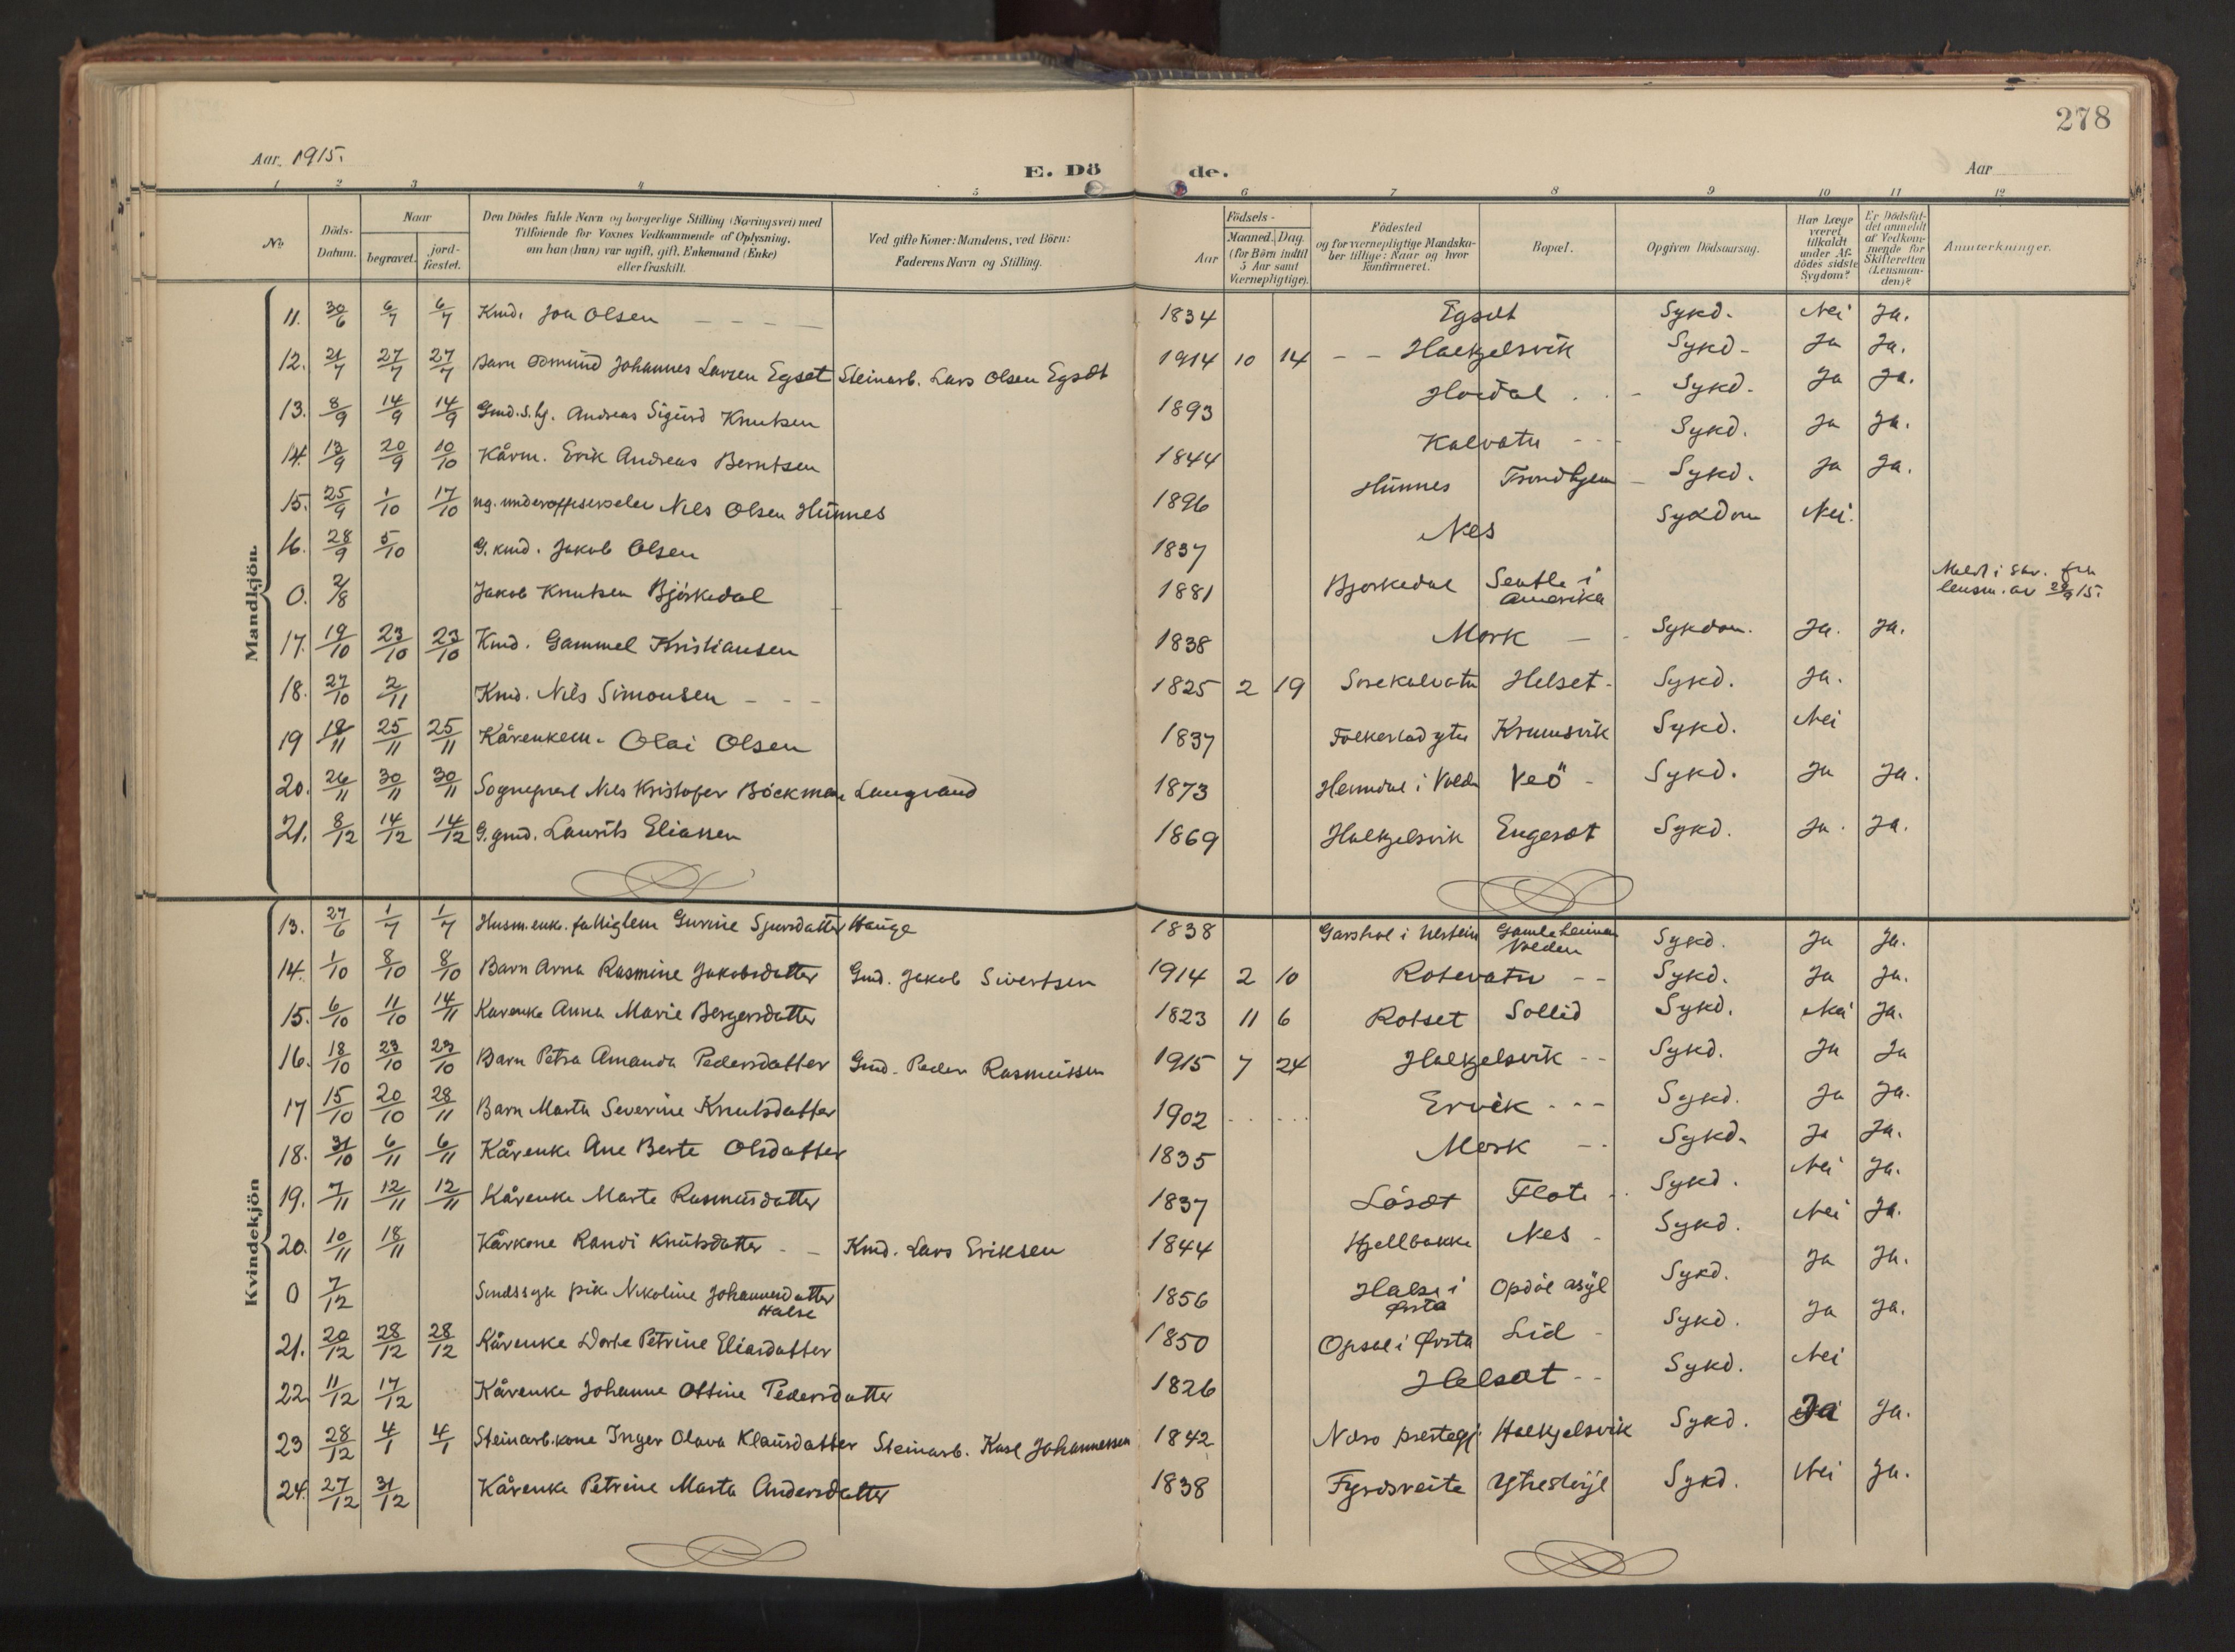 278
Aar. 1915.
E. Dö de.
Aar
1 2 3 4 5 6 7 8 9 10 11 12
No
Döds-Datum.
Naar
begravet.
jord-fæstet.
Den Dödes fulde Navn og borgerlige Stilling (Næringsvei) med
Tilföiende for Voxnes Vedkommende af Oplysning,
om han (hun) var ugift, gift, Enkemand (Enke)
eller fraskilt.
Ved gifte Koner: Mandens, ved Börn:
Faderens Navn og Stilling.
Födsels-
Aar
Maaned.
Dag.
(for Börn indtil
5 Aar samt
Værnepligtige).
Födested
og for værnepligtige Mandska-
ber tillige: Naar og hvor
konfirmeret.
Bopæl.
Opgiven Dödsaarsag.
Har Læge
været
tilkaldt
under Af-
dödes sidste
Sygdom?
Er Dödsfal-
det anmeldt
af Vedkom-
mende for
Skifteretten
(Lensman-
den)?
Anmerkninger.
Mandkjön.
11. 30/6 6/7 6/7 Kmd. Jon Olsen - - - - 1834 Egset Sykd. Nei Ja.
12. 21/7 27/7 27/7 Barn Odmund Johannes Larsen Egset Steinarb. Lars Olsen Egset 1914 10 14 - - Halkjelsvik Sykd- Ja Ja.
13. 8/9 14/9 14/9 Gmd.s. Andreas Sigurd Knutsen 1893 Hovdal Sykd- Ja Ja.
14. 13/9 20/9 10/10 Kårm. Erik Andreas Berntsen 1844 Kalvatn - - Sykd. Ja Ja.
15. 25/9 1/10 17/10 ug. underoffiserselev Nils Olsen Hunnes 1896 Hunnes Trondhjem - Sykd. Ja Ja.
16. 28/9 5/10 G. kmd. Jakob Olsen 1837 Nes Sykdom Nei.
0. 2/8 Jakob Knutsen Björkedal 1881 Bjorkedal Seatle i Amerika Meldt i skr. fra lensm. av 29/9 15.
17. 19/10 23/10 23/10 Kmd. Gammel Kristiansen 1838 Mork - - Sykdom. Ja. Ja.
18. 27/10 2/11 Kmd. Nils Simonsen - - - 1825 2 19 Sorekalvatn Helset- Sykd. Ja.
19 18/11 25/11 25/11 Kårenkem. Olai Olsen 1837 Folkestad ytre Krumsvik Sykd. Nei
20. 26/11 30/11 30/11 Sogneprest Nils Kristofer Böckman Langvand 1873 Hemdal i Volda Veö - Sykd. Ja Ja.
21. 8/12 14/12 14/12 G.gmd. Laurits Eliassen 1869 Halkjelsvik Engeset Sykd. Ja. Ja.
Kvindekjön
13. 27/6 1/7 1/7 Husm.enk. fattiglem Gurine Sjursdatter Hauge 1838 Garshol i Ulstein Gamleheimen Volden Sykd. Ja Ja.
14. 1/10 8/10 8/10 Barn Arna Rasmine Jakobsdatter Gmd. Jakob Sivertsen 1914 2 10 Rotevatn - - Sykd. Ja Ja.
15. 6/10 11/10 14/11 Karenke Anna Marie Bergersdatter 1823 11 6 Rotset Sollid Sykd. Nei Ja.
16. 18/10 23/10 23/10 Barn Petra Amanda Pedersdatter Gmd. Peder Rasmussen 1915 7 24 Halkjelsvik - - Sykd. Ja Ja
17 15/10 20/10 28/11 Barn Marta Severine Knutsdatter 1902 Ervik - - - Sykd. Ja Ja.
18. 31/10 6/11 6/11 Kårenke Ane Berte Olsdatter 1835 Mork - - Sykd. Ja Ja.
19. 7/11 12/11 12/11 Kårenke Marte Rasmusdatter 1837 Löset Flote - Sykd. Nei Ja.
20. 10/11 18/11 Kårkone Randi Knutsdatter - - Kmd. Lars Eriksen 1844 Hjellbakke Nes - Sykd. Nei Ja.
0 7/12 Sindssyk pike Nikoline Johannesdatter Halse 1856 Halse i Ørsta Opdöl asyl Sykd. Ja Ja.
21. 20/12 28/12 28/12 Kårenke Dorte Petrine Eliasdatter 1850 Opsal i Ørsta Lid - Sykd. Ja Ja.
22. 11/12 17/12 Kårenke Johanne Ottine Pedersdatter 1826 Helset - - Sykd. Nei
23 28/12 4/1 4/1 Steinarb.kone Inger Olava Klausdatter Steinarb. Karl Johannessen 1842 Nærø prestegj. Halkjelsvik Sykd. Ja Ja.
24. 27/12 31/12 Kårenke Petrine Marta Andersdatter 1838 Fyrdsreite Sykd. Nei Ja.